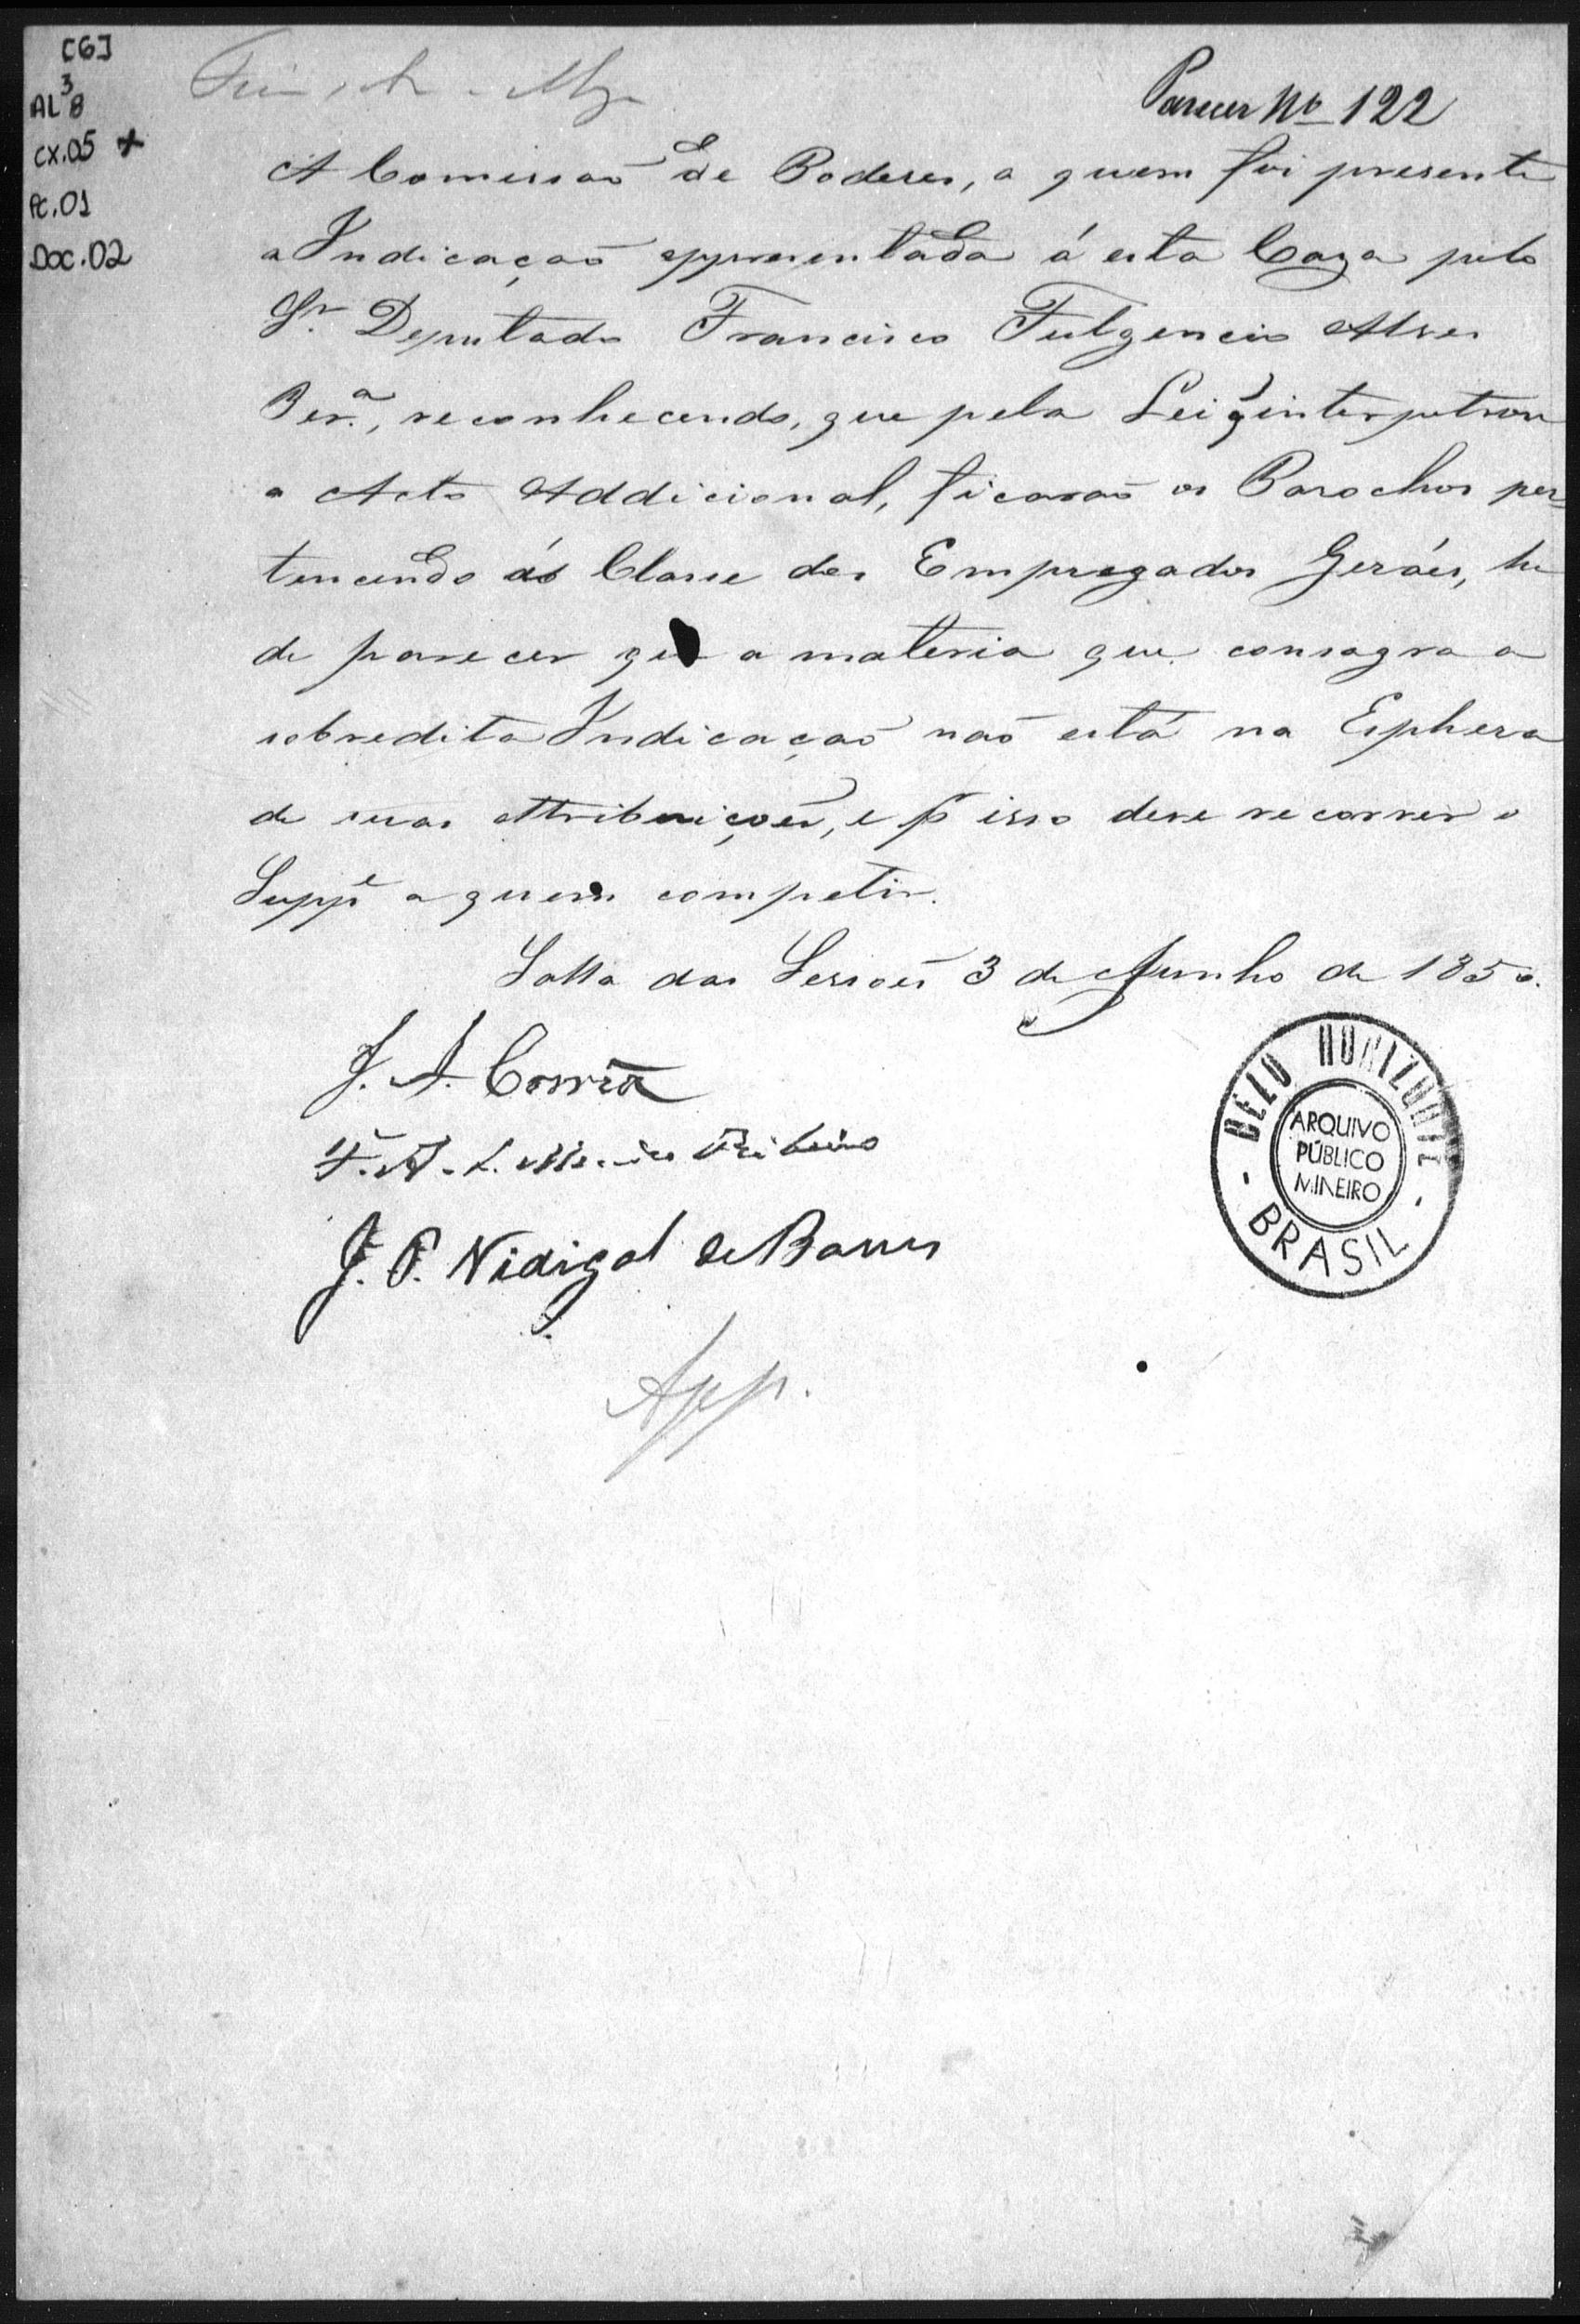 [6]
AL³8
CX.05 +
Pc.01
Doc.02
Parecer Nº 122
A Comissaõ de Poderes, a quem foi presente
a Indicaçaõ appresentada á esta Caza pelo
Sr. Deputado Francisco Fulgencio Alves
Per.ª, reconhecendo, que pela Lei q̃ interpetrou
o Acto Addicional, ficaraõ os Parochos per=
tencendo ás Classe dos Empregados Geráes, he
de parecer que a materia que consagra a
sobredita Indicaçaõ naõ está na Esphera
de suas attribuiçoẽs, e pr isso deve recorrer o
Suppe a quem competir.
Salla das Sessoẽs 3 de Junho de 1850.
J. A. Corrêa
Ribeiro
J. P. Nidigal de Barros
App.
BELO HORIZONTE
ARQUIVO
PÚBLICO
MINEIRO
- BRASIL -